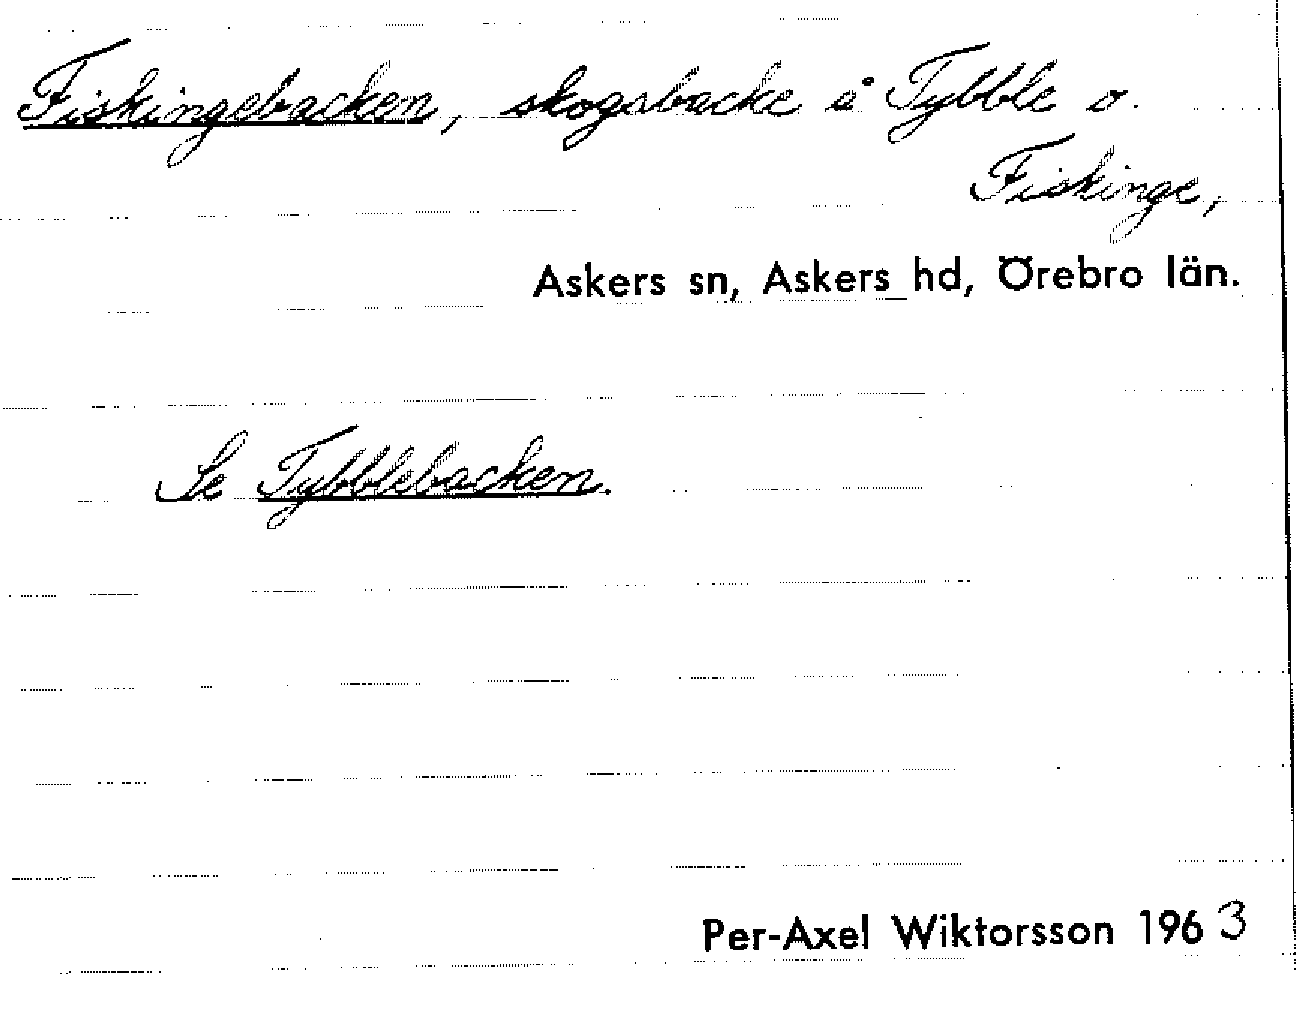 Fiskingebacken, skogsbacke å Tybble o.
Fiskinge,
Askers sn, Askers hd, Örebro län.
Se Tybblebacken.
Per-Axel Wiktorsson 1963